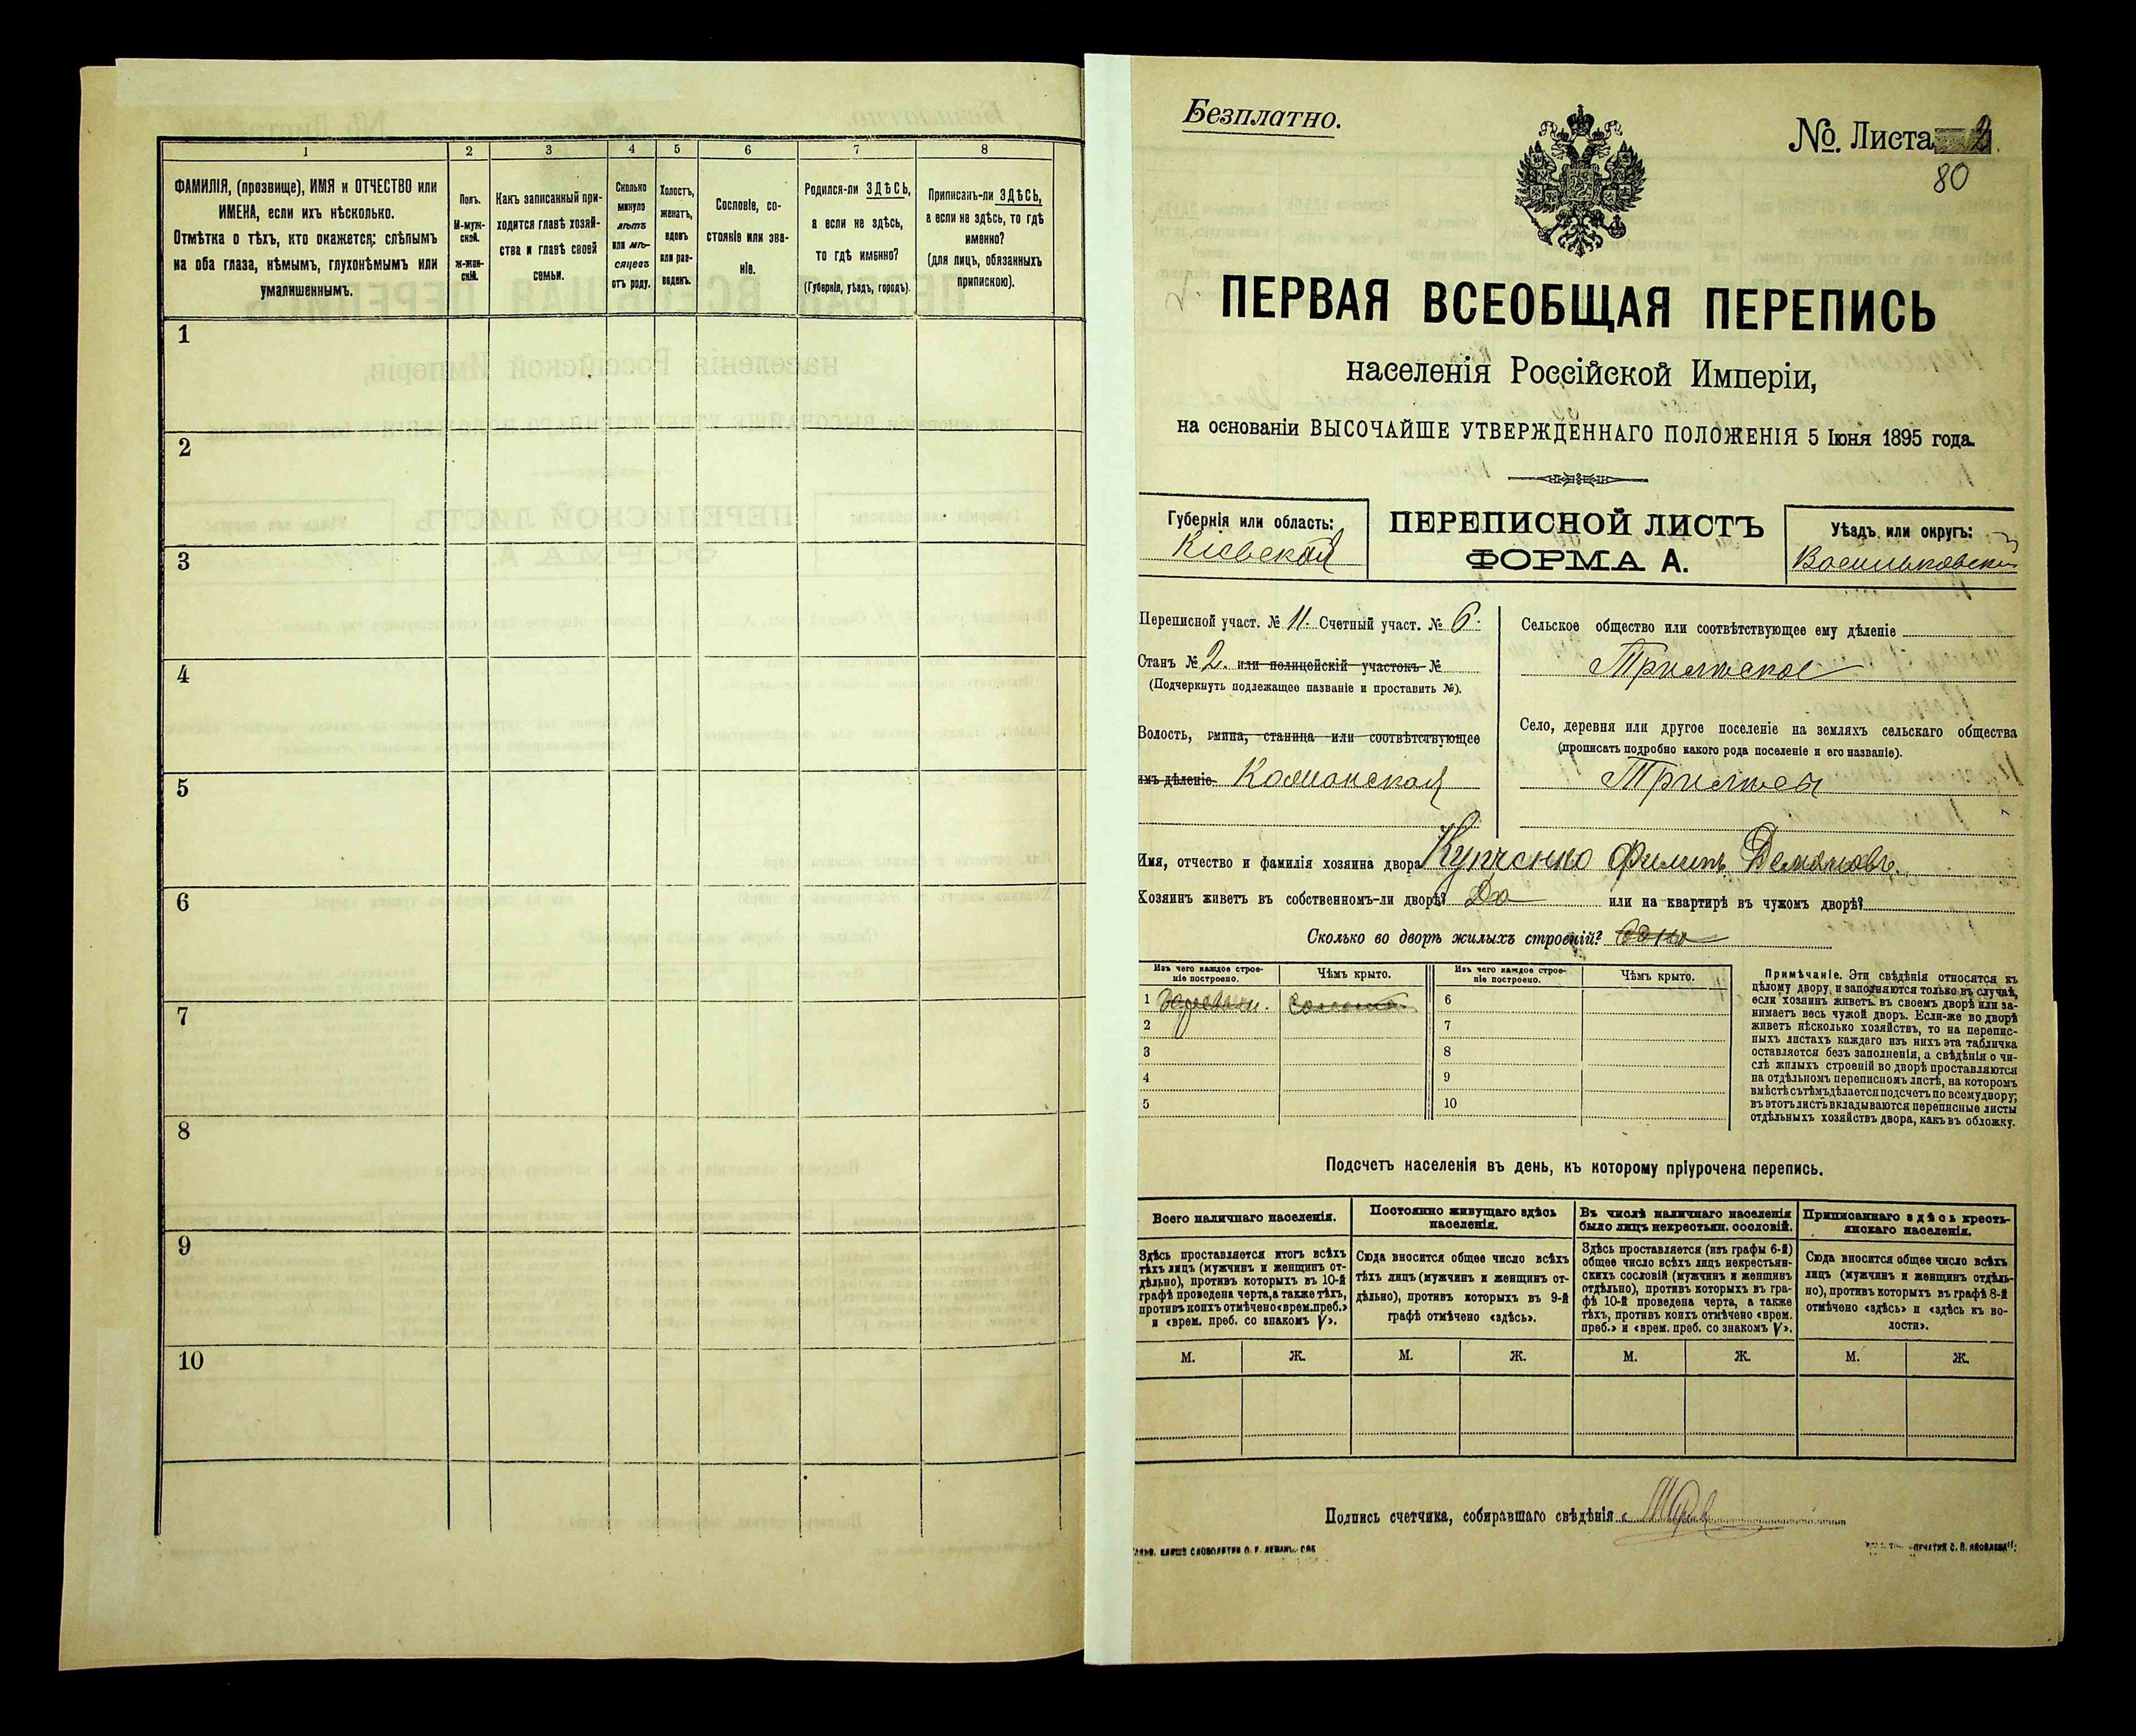 1
2
3
4
5
6
7
8
ФАМИЛІЯ, (прозвище), ИМЯ и ОТЧЕСТВО или
ИМЕНА, если ихъ нѣсколько.
Отмѣтка о тѣхъ, кто окажется: слѣпымъ
на оба глаза, нѣмымъ, глухонѣмымъ или
умалишеннымъ.
Полъ.
М-муж-
ской.
Ж-жен-
скій.
Какъ записанный при-
ходится главѣ хозяй-
ства и главѣ своей
семьи.
Сколько
минуло
лѣтъ
или мѣ-
сяцевъ
отъ роду.
Холостъ,
женатъ,
вдовъ
или раз-
веденъ.
Сословіе, со-
стояніе или зва-
ніе.
Родился-ли ЗДѢСЬ,
а если не здѣсь,
то гдѣ именно?
(Губернія, уѣздъ, городъ).
Приписанъ-ли ЗДѢСЬ,
а если не здѣсь, то гдѣ
именно?
(для лицъ, обязанныхъ
припискою).
1
2
3
4
5
6
7
8
9
10
Безплатно.
№. Листа
80
ПЕРВАЯ ВСЕОБЩАЯ ПЕРЕПИСЬ
населенія Россійской Имперіи,
на основаніи ВЫСОЧАЙШЕ УТВЕРЖДЕННАГО ПОЛОЖЕНІЯ 5 Іюня 1895 года.
Губернія или область:
Кіевская
ПЕРЕПИСНОЙ ЛИСТЪ
ФОРМА А.
Уѣздъ или округъ:
Васильковскій
Переписной участ. № 11. Счетный участ. № 6.
Станъ № 2. или полицейскій участокъ №
(Подчеркнуть подлежащее названіе и проставить №).
Волость, гмина, станица или соотвѣтствующее
имъ дѣленіе Кожанская
Сельское общество или соотвѣтствующее ему дѣленіе
Трилѣское
Село, деревня или другое поселеніе на земляхъ сельскаго общества
(прописать подробно какого рода поселеніе и его названіе).
Трилѣсы
Имя, отчество и фамилія хозяина двора Купченко Филипъ Демяновъ.
Хозяинъ живетъ въ собственномъ-ли дворѣ? Да или на квартирѣ въ чужомъ дворѣ?
Сколько во дворѣ жилыхъ строеній? одно
Изъ чего каждое строе-
ніе построено.
Чѣмъ крыто.
Изъ чего каждое строе-
ніе построено.
Чѣмъ крыто.
1 деревяни. Солома
2
3
4
5
6
7
8
9
10
Примѣчаніе. Эти свѣдѣнія относятся къ
цѣлому двору, и заполняются только въ случаѣ,
если хозяинъ живетъ въ своемъ дворѣ или за-
нимаетъ весь чужой дворъ. Если-же во дворѣ
живетъ нѣсколько хозяйствъ, то на перепис-
ныхъ листахъ каждаго изъ нихъ эта табличка
оставляется безъ заполненія, а свѣдѣнія о чи-
слѣ жилыхъ строеній во дворѣ проставляются
на отдѣльномъ переписномъ листѣ, на которомъ
вмѣстѣ съ тѣмъ дѣлается подсчетъ по всему двору;
въ этотъ листъ вкладываются переписные листы
отдѣльныхъ хозяйствъ двора, какъ въ обложку.
Подсчетъ населенія въ день, къ которому пріурочена перепись.
Всего наличнаго населенія.
Постоянно живущаго здѣсь
населенія.
Въ числѣ наличнаго населенія
было лицъ некрестьян. сословій.
Приписаннаго здѣсь кресть-
янскаго населенія.
Здѣсь проставляется итогъ всѣхъ
тѣхъ лицъ (мужчинъ и женщинъ от-
дѣльно), противъ которыхъ въ 10-й
графѣ проведена черта, а также тѣхъ,
противъ коихъ отмѣчено «врем. преб.»
и «врем. преб. со знакомъ V».
Сюда вносится общее число всѣхъ
тѣхъ лицъ (мужчинъ и женщинъ от-
дѣльно), противъ которыхъ въ 9-й
графѣ отмѣчено «здѣсь».
Здѣсь проставляется (изъ графы 6-й)
общее число всѣхъ лицъ некрестьян-
скихъ сословій (мужчинъ и женщинъ
отдѣльно), противъ которыхъ въ гра-
фѣ 10-й проведена черта, а также
тѣхъ, противъ коихъ отмѣчено «врем.
преб.» и «врем. преб. со знакомъ V».
Сюда вносится общее число всѣхъ
лицъ (мужчинъ и женщинъ отдѣль-
но), противъ которыхъ въ графѣ 8-й
отмѣчено «здѣсь» и «здѣсь къ во-
лости».
М. Ж. М. Ж. М. Ж. М. Ж.
Подпись счетчика, собиравшаго свѣдѣнія